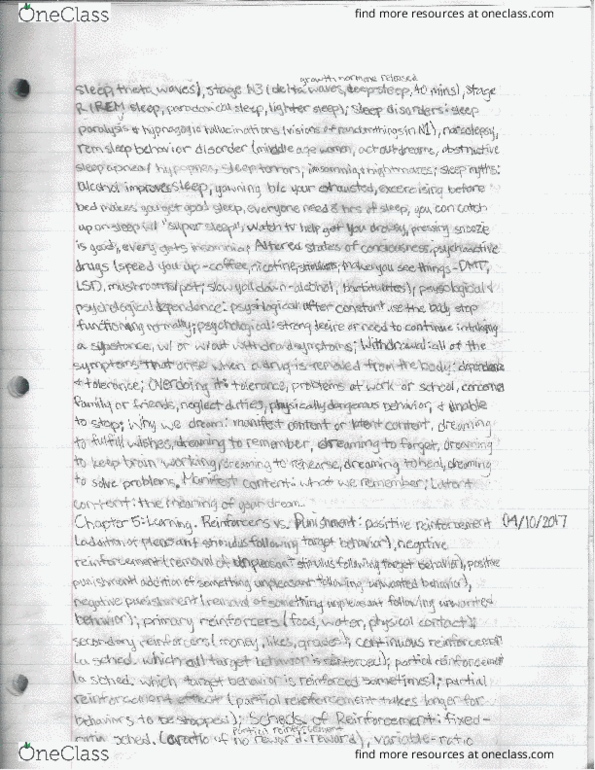 OneClass
find more resources at oneclass.com
growth hormone released
sleep, theta waves), stage N3 (delta waves, deep sleep, 40 mins), stage
R (REM sleep, paradoxical sleep, lighter sleep); sleep disorders: sleep
paralysis & hypnagogic hallucinations (visions of random things in N1), narcolepsy,
rem sleep behavior disorder (middle age women, act out dreams, obstructive
sleep apnea / sleep terrors, insomnia & nightmares; sleep myths:
alcohol improves sleep, yawning b/c your exhausted, excercising before
bed makes you get good sleep, everyone needs 8 hrs of sleep, you can catch
up on sleep w/ "super sleep", watch tv to help get you drowsy, pressing snooze
is good, every gets insomnia; Altered states of conciousness: psychoactive
drugs (speed you up - coffee, nicotine, ; makes you see things - DMT,
LSD, mushrooms/pot; slow you down - alcohol, barbituates); physological &
psychological dependence: after constant use the body stop
functioning normally; psychological: strong desire or need to continue
a substance, w/ or w/out withdraw symptoms; Withdrawal: all of the
symptoms that arise when a drug is removed from the body: dependence
& tolerance; Overdoing it: tolerance, problems at work or school, concerns
family or friends, neglect duties, physically dangerous behavior, & unable
to stop; Why we dream: manifest content or latent content, dreaming
to fulfill wishes, dreaming to remember, dreaming to forget, dreaming
to keep brain working, dreaming to rehearse, dreaming to heal, dreaming
to solve problems. Manifest content: what we remember; Latent
content: the meaning of your dream.
Chapter 5: Learning. Reinforcers vs. Punishment: positive reinforcement 04/10/2017
(addition of pleasant stimulus following target behavior), negative
reinforcement (removal of unpleasant stimulus following target behavior), positive
punishment (addition of something unpleasant following unwanted behavior),
negative punishment (removal of something unpleasant following unwanted
behavior); primary reinforcers (food, water, physical contact);
secondary reinforcers (money, likes, grades); continuous reinforcement
(a sched. which all target behavior is reinforced); partial reinforcement
(a sched. which target behavior is reinforced sometimes); partial
reinforcement effect (partial reinforcement takes longer for
behaviors to be stopped); Scheds of Reinforcement: fixed-
partial reinforcement
ratio sched. (a ratio of no reward:reward), variable-ratio
OneClass
find more resources at oneclass.com